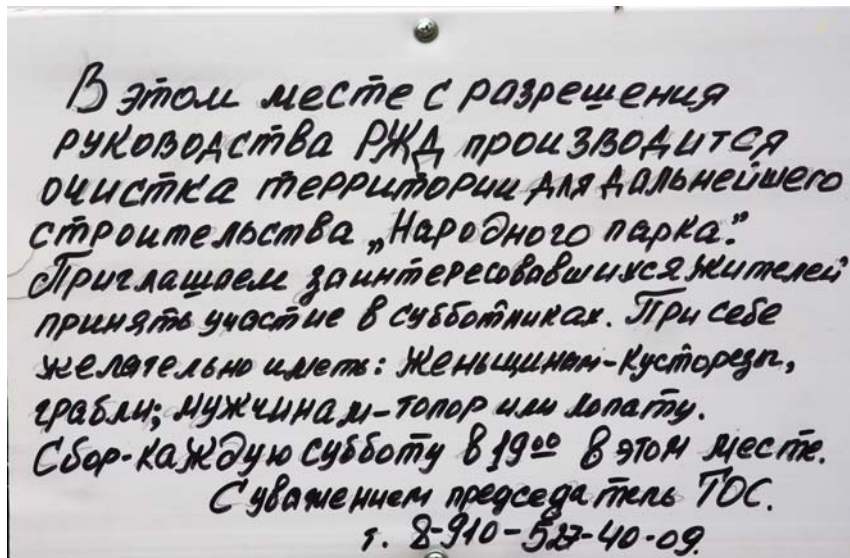 В этом месте с разрешения
руководства РЖД производится
очистка территории для дальнейшего
строительства „Народного парка."
Приглашаем заинтересовавшихся жителей
принять участие в субботниках. При себе
желательно иметь: женьщинам-кусторезы,
грабли; мужчинам-топор или лопату.
Сбор-каждую субботу в 19⁰⁰ в этом месте.
С уважением председатель ТОС.
т. 8-910-527-40-09.